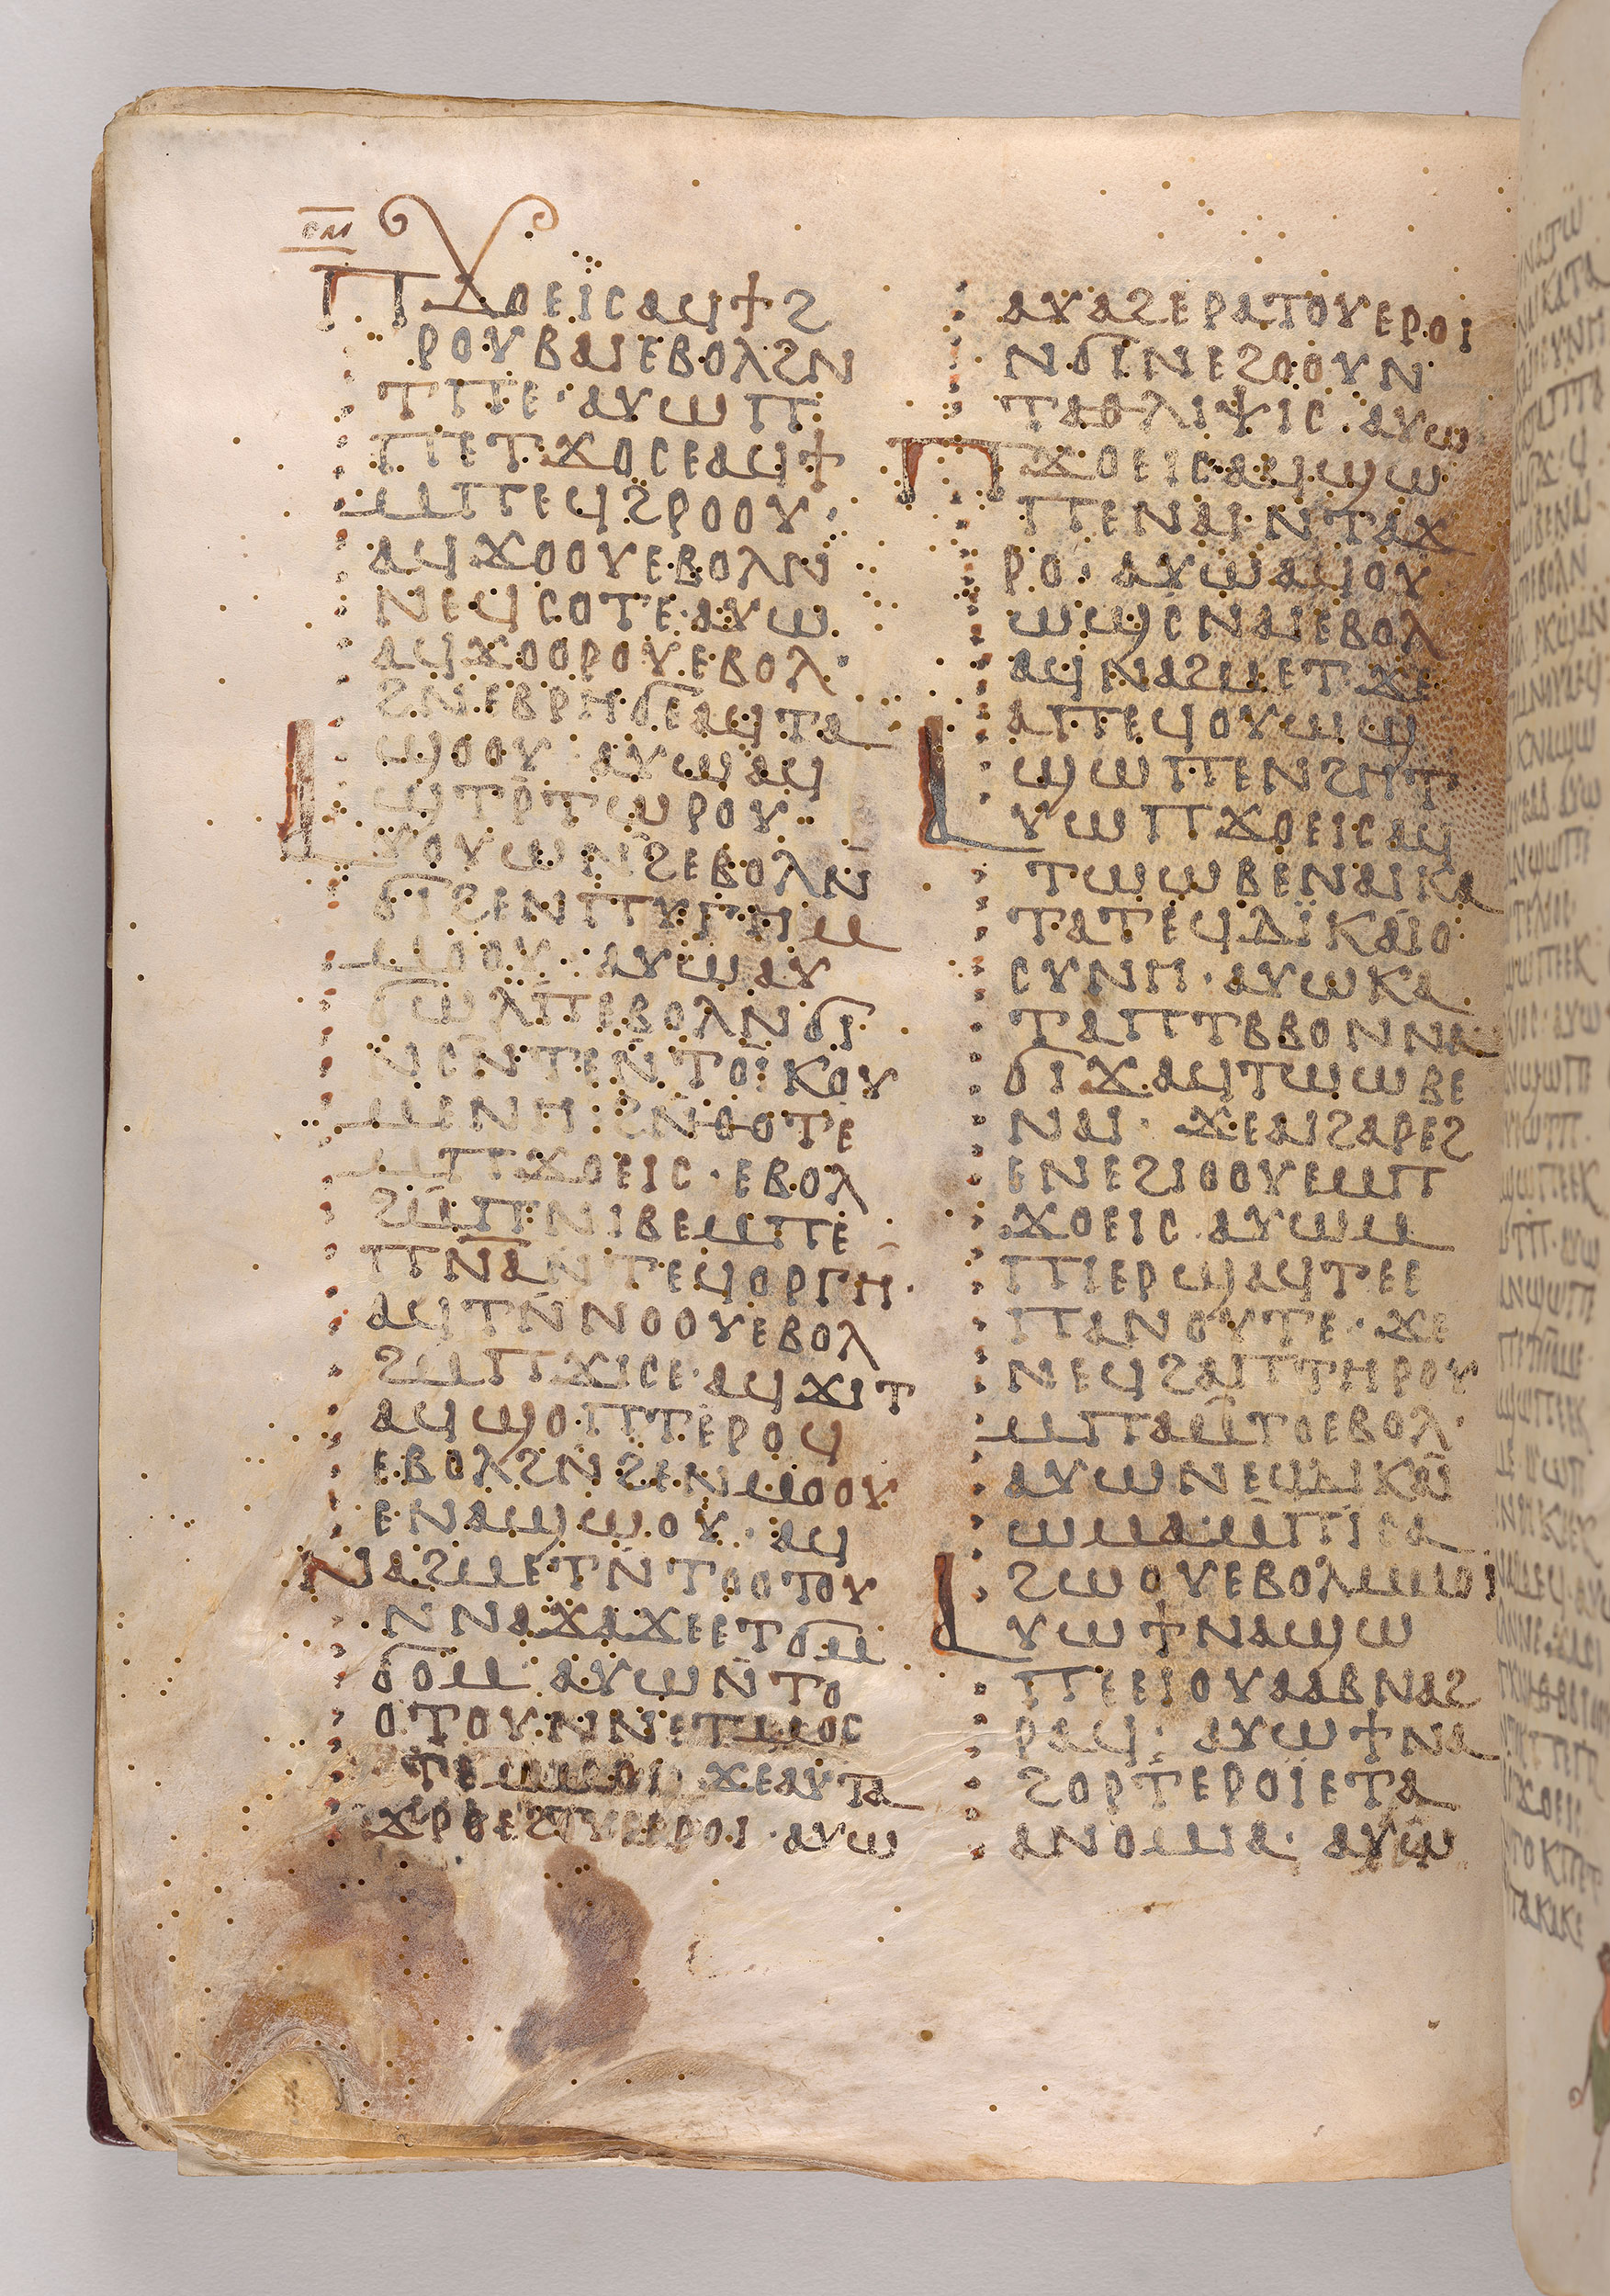 ⲠϪⲞⲈⲒⲤⲀϤϮϨ
ⲢⲞⲨⲂⲂⲀⲒⲈⲂⲞⲖϨⲚ
ⲦⲠⲈ·ⲀⲨⲰⲠ
ⲠⲈⲦϪⲞⲤⲈⲀϤϮ
ⲘⲠⲈϤϨⲢⲞⲞⲨ·
ⲀϤϪⲞⲞⲨⲈⲂⲞⲖⲚ
ⲚⲈϤⲤⲞⲦⲈ·ⲀⲨⲰ
ⲀϤϪⲞⲞⲢⲞⲨⲈⲂⲞⲖ·
ϨⲚⲈⲂⲢⲎϬⲈⲀϤⲦⲀ
ϢⲞⲞⲨ·ⲀⲨⲰⲀϤ
ϢⲦⲢⲦⲰⲢⲞⲨ·
ⲀⲨⲞⲨⲰⲚϨⲈⲂⲞⲖⲚ̄
ϬⲒϨⲈⲚⲠⲨⲄⲎⲘ
ⲘⲞⲞⲨ·ⲀⲨⲰⲀⲨ
ϬⲰⲖⲠⲈⲂⲞⲖⲚϬⲒ
ⲚⲤⲚⲦⲈⲚⲦⲞⲒⲔⲞⲨ
ⲘⲈⲚⲎ:ϨⲚⲐⲞⲦⲈ
ⲘⲠϪⲞⲈⲒⲤ·ⲈⲂⲞⲖ
ϨⲘⲠⲚⲒⲂⲈⲘⲠⲈ
ⲠⲚ̄Ⲁ̄ⲚⲦⲈϤⲞⲢⲄⲎ·
ⲀϤⲦⲚⲚⲞⲞⲨⲈⲂⲞⲖ
ϨⲘⲠϪⲒⲤⲈ·ⲀϤϪⲒⲦ
ⲀϤϢⲞⲠⲦⲈⲢⲞϤ
ⲈⲂⲞⲖϨⲚϨⲈⲚⲘⲞⲞⲨ
ⲈⲚⲀϢⲰⲞⲨ·ⲀϤ
ⲚⲀϨⲘⲈⲦⲚⲦⲞⲞⲦⲞⲨ
ⲚⲚⲀϪⲀϪⲈⲈⲦϬⲘ
ϬⲞⲘ·ⲀⲨⲰⲚⲦⲞ
ⲞⲦⲞⲨⲚⲚⲈⲦⲘⲞⲤ
ⲦⲈⲘⲘⲞⲒϪⲈⲀⲨⲦⲀ
ϪⲢⲞⲈϨⲞⲨⲈⲢⲞⲒ·ⲀⲨⲰ
ⲀⲨⲀϨⲈⲢⲀⲦⲞⲨⲈⲢⲞⲒ
ⲚϬⲒⲚⲈϨⲞⲞⲨⲚ
ⲦⲀⲐⲖⲒⲮⲒⲤ·ⲀⲨⲰ
ⲠϪⲞⲈⲒⲤⲀϤϢⲰ
ⲠⲈⲚⲀⲒⲚⲦⲀϪ
ⲢⲞ·ⲀⲨⲰⲀϤⲞⲨ
ⲰϢⲤⲚⲀⲒⲈⲂⲞⲖ
ⲀϤⲚⲀϨⲘⲈⲦϪⲈ
ⲀⲠⲈϤⲞⲨⲰϢ
ϢⲰⲠⲈⲚϨⲎⲦ
ⲀⲨⲰⲠϪⲞⲈⲒⲤⲀϤ
ⲦⲰⲰⲂⲈⲚⲀⲒⲔⲀ
ⲦⲀⲦⲈϤⲆⲒ̈ⲔⲀⲒⲞ
ⲤⲨⲚⲎ·ⲀⲨⲰⲔⲀ
ⲦⲀⲠⲦⲂⲂⲞⲚⲚⲀ
ϬⲒϪⲀϤⲦⲰⲰⲂⲈ
ⲚⲀⲒ·ϪⲈⲀⲒϨⲀⲢⲈϨ
ⲈⲚⲈϨⲒⲞⲞⲨⲈⲘⲠ
ϪⲞⲈⲒⲤ·ⲀⲨⲰⲘ
ⲠⲒⲈⲢϢⲀϤⲦⲈⲈ
ⲠⲀⲚⲞⲨⲦⲈ·ϪⲈ
ⲚⲈϤϨⲀⲠⲦⲎⲢⲞⲨ
ⲘⲠⲀⲘ̄ⲦⲞⲈⲂⲞⲖ·
ⲀⲨⲰⲚⲈϤⲆⲒⲔⲀⲒ̄
ⲰⲘⲀ·ⲘⲠⲒⲤⲀ
ϨⲰⲞⲨⲈⲂⲞⲖⲘⲘⲞⲒ
ⲀⲨⲰϮⲚⲀϢⲰ
ⲠⲈⲈⲒⲞⲨⲀⲀⲂⲚⲀϨ
ⲢⲀϤ·ⲀⲨⲰϮⲚⲀ
ϨⲞⲢⲦⲈⲢⲞⲒ̈ⲈⲦⲀ
ⲀⲚⲞⲘⲒⲀ·ⲀⲨⲰ